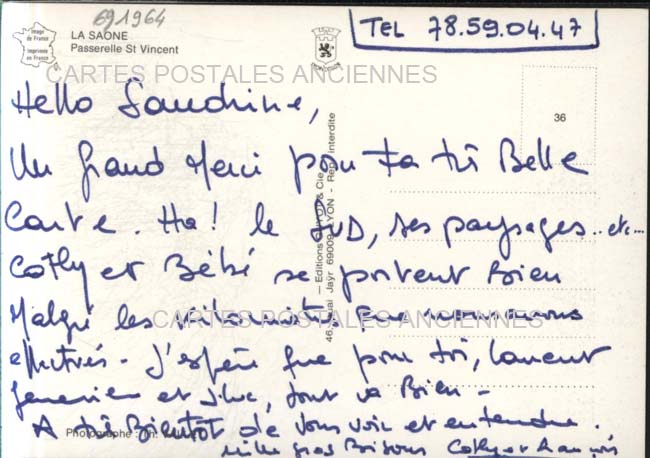 691964
Image de France
imprimée en France
LA SAONE
Passerelle St Vincent
TEL 78.59.04.47
CARTES POSTALES ANCIENNES
36
Hello Sandrine,
Un grand Merci pour ta très Belle
Carte. Ha! le SUD, ses paysages..etc...
Cathy et Bébé se portent Bien
Malgré les que nous avons
effectués - J'espère que pour toi, Laurent
Geneviève et J.Luc, tout va Bien -
A très Bientôt de vous voir et entendre.
mille gros Bisous Cathy et François
CARTES POSTALES ANCIENNES
Editions & Cie
46, quai Jaÿr 69009 LYON - Rep. interdite
Photographe : Th.